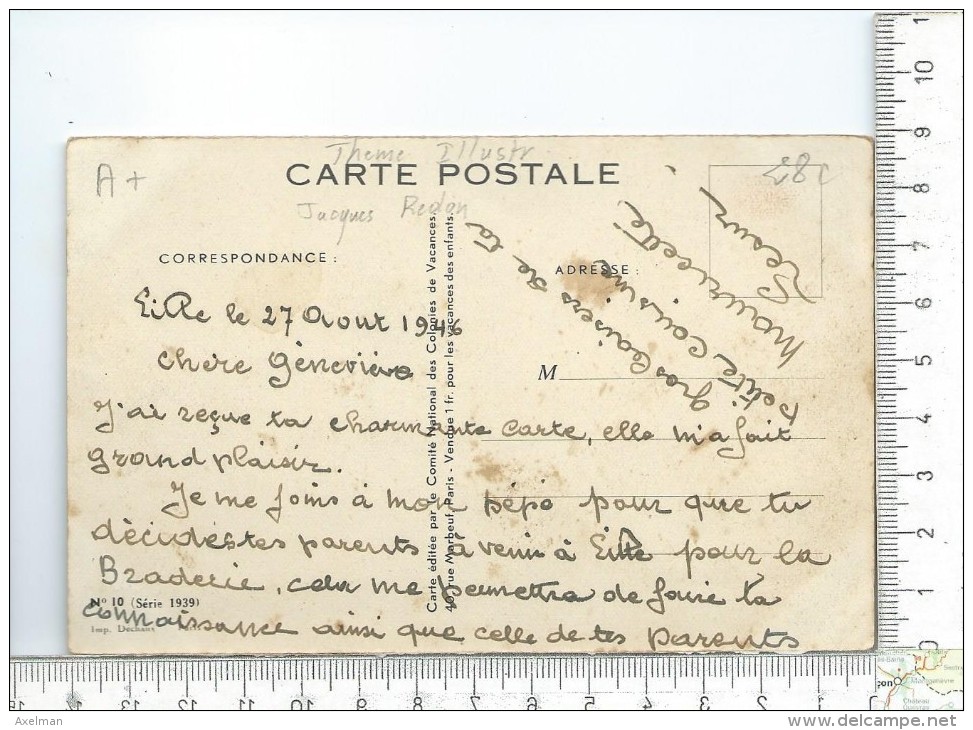 Theme Illustr
A+
28c
CARTE POSTALE
Jacques Redon
CORRESPONDANCE :
ADRESSE :
Lille le 27 Aout 1946
chère Géneviève
M
J'ai reçue ta charmante carte, elle m'a fait
grand plaisir.
Je me joins à mon pépé pour que tu
décides tes parents à venir à Lille pour la
Braderie, cela me permettra de faire ta
connaissance ainsi que celle de tes parents
gros baisers de ta
petite cousine
Mauricette
Carte éditée par le Comité National des Colonies de Vacances
40, rue Marbeuf, Paris - Vendue 1 fr. pour les vacances des enfants.
N° 10 (Série 1939)
Imp. Dechaux
10 9 8 7 6 5 4 3 2 1 0
11 10 9 8 7 6 5 4 3 2 1 0
Axelman
www.delcampe.net